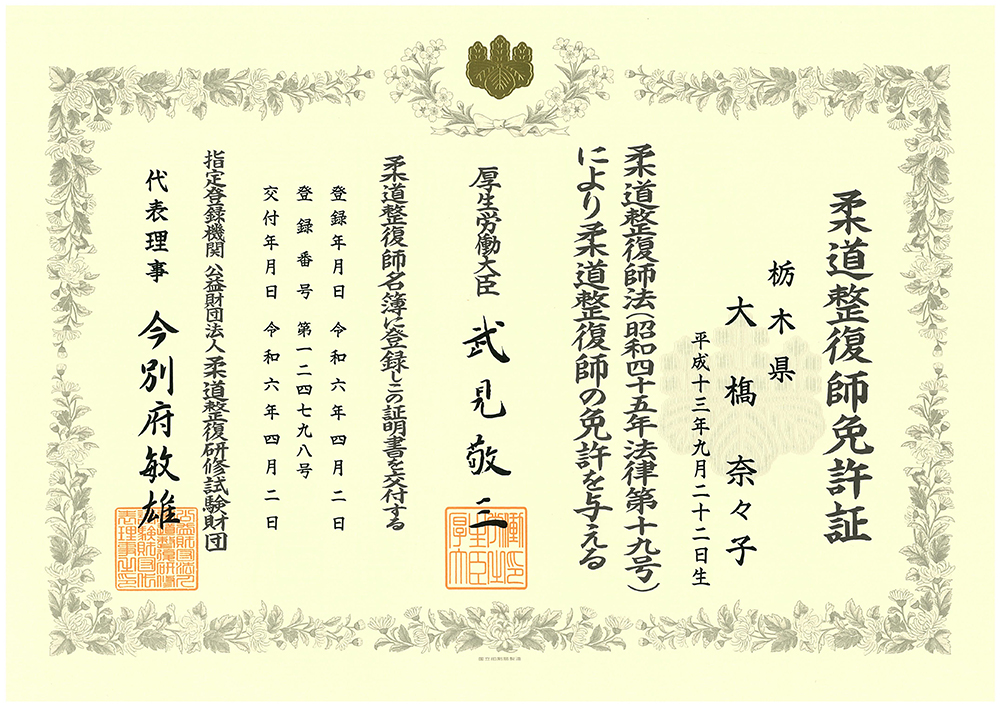 柔道整復師免許証
栃木県
大橋 奈々子
平成十三年九月二十二日生
柔道整復師法(昭和四十五年法律第十九号)
により柔道整復師の免許を与える
厚生労働大臣 武見敬三
柔道整復師名簿に登録しこの証明書を交付する
登録年月日 令和六年四月二日
登録番号 第一二四七九八号
交付年月日 令和六年四月二日
指定登録機関 公益財団法人柔道整復研修試験財団
代表理事 今別府敏雄